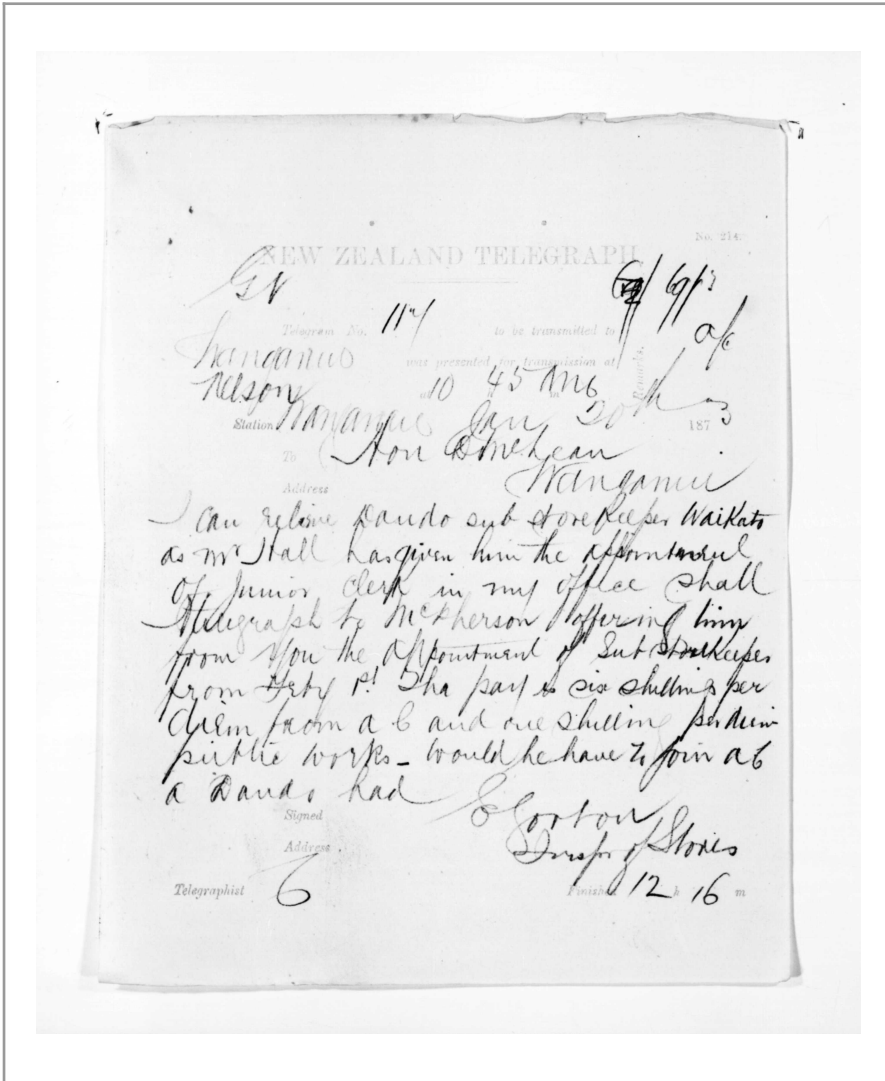 No. 214.
NEW ZEALAND TELEGRAPH
Gvt
69/
Telegram No. 117 to be transmitted to
Wanganui was presented for transmission at
Remarks.
Nelson at 10 45 Am
Station Wanganui Jan 20th 1873
To Hon D McLean
Address Wanganui
I can relieve Dando sub storekeeper Waikato
as Mr Hall has given him the appointment
of Junior Clerk in my office shall
I telegraph to McPherson offering him
from you the appointment of Sub Storekeeper
from Feby 1st The pay is six shillings per
diem from a C and one shilling per diem
public works – would he have to join a C
a Dando had
Signed E Gorton
Address Inspr of Stores
Telegraphist
Finished 12 h 16 m